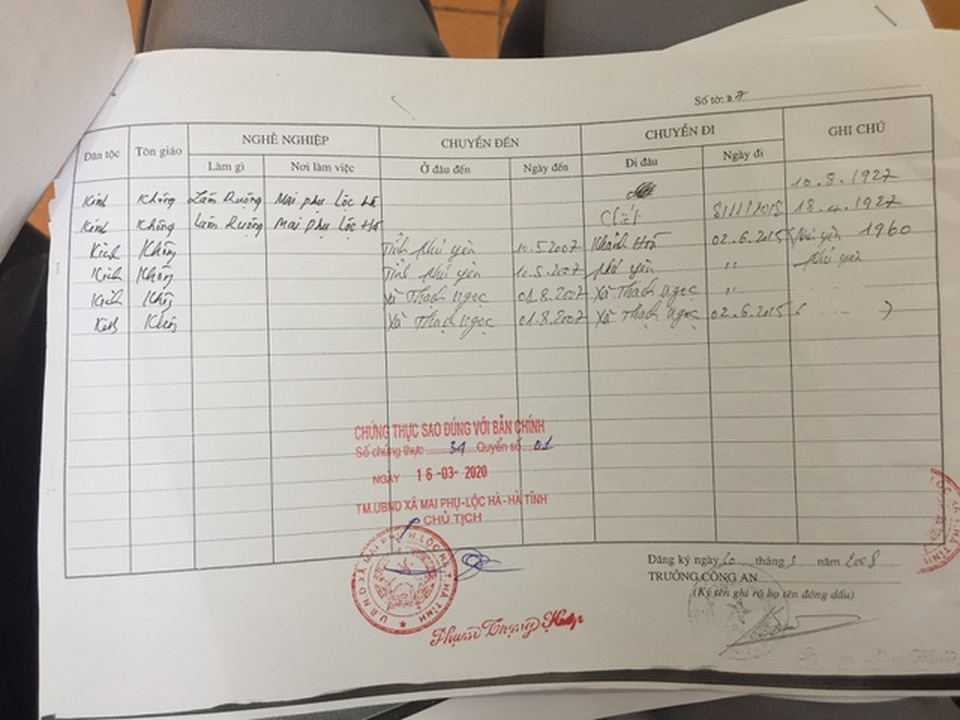 Số tờ: 27
Dân tộc Tôn giáo NGHỀ NGHIỆP CHUYỂN ĐẾN CHUYỂN ĐI GHI CHÚ
Làm gì Nơi làm việc Ở đâu đến Ngày đến Đi đâu Ngày đi
Kinh Không Làm Ruộng Mai phụ Lộc Hà 10.8.1927
Kinh Không Làm Ruộng Mai phụ Lộc Hà Chết 8/11/2015 18.4.1927
Kinh Không Tỉnh Phú yên 10.5.2007 Khánh Hoà 02.6.2015 Phú yên 1960
Kinh Không Tỉnh Phú yên 10.5.2007 Phú yên " Phú yên
Kinh Không Xã Thạch Ngọc 01.8.2007 Xã Thạch Ngọc "
Kinh Không Xã Thạch Ngọc 01.8.2007 Xã Thạch Ngọc 02.6.2015
CHỨNG THỰC SAO ĐÚNG VỚI BẢN CHÍNH
Số chứng thực 39 Quyển số 01
NGÀY 16-03-2020
TM.UBND XÃ MAI PHỤ-LỘC HÀ-HÀ TĨNH
CHỦ TỊCH
Đăng ký ngày 20 tháng 3 năm 2008
TRƯỞNG CÔNG AN
(Ký tên ghi rõ họ tên đóng dấu)
Phạm Trọng Hiệp